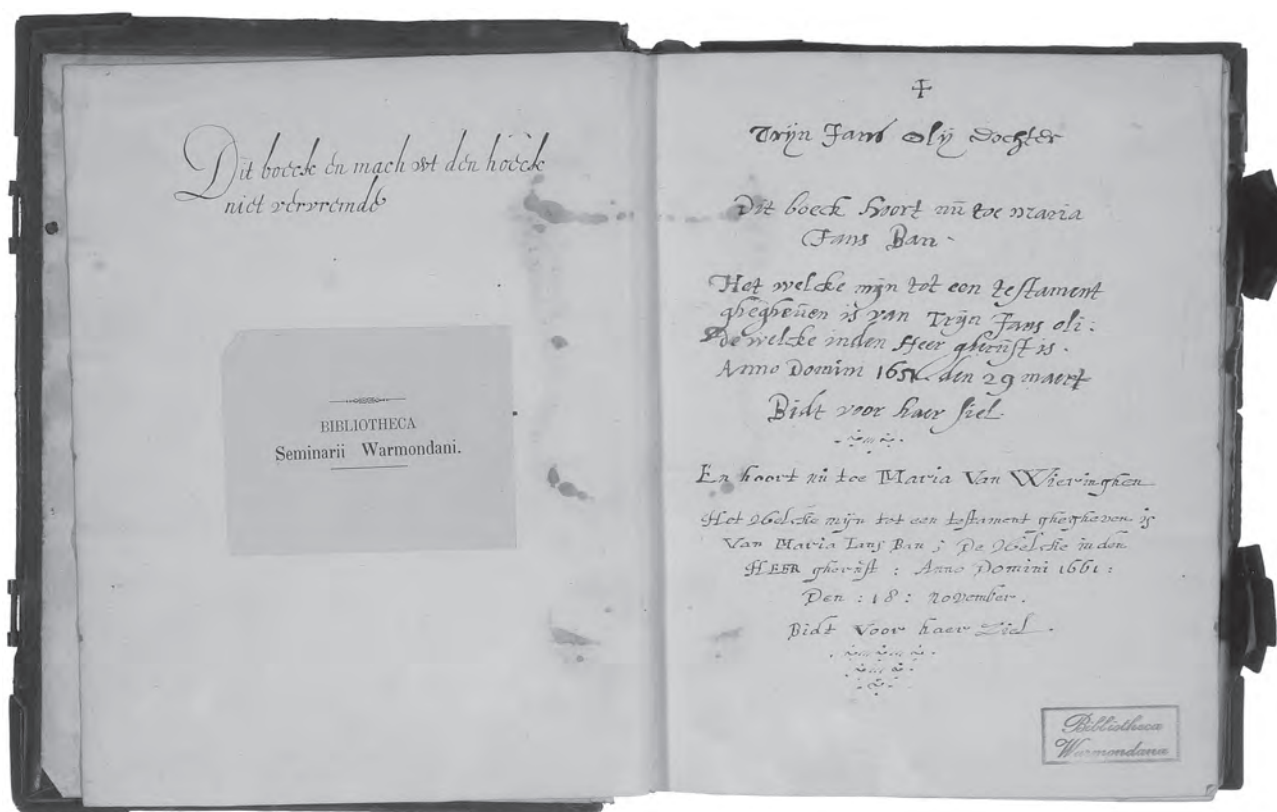 Dit boeck en mach wt den hoeck
niet vervremde
BIBLIOTHECA
Seminarii Warmondani.
✝
Trijn Jans Olij dochter
Dit boeck hoort nŭ toe maria
Jans Ban.
Het welcke mijn tot een testament
ghegheŭen is van Trijn Jans oli:
de welcke inden Heer gherŭst is.
Anno Domini den 29 maert
Bidt voor haer siel.
En hoort nŭ toe Maria Van Wieringhen
Het Welcke mijn tot een testament ghegheven is
Van Maria Ians Ban ; De Welcke inden
HEER gherŭst : Anno Domini 1661 :
Den : 18 : November .
Bidt Voor haer Ziel .
Bibliotheca
Warmondana